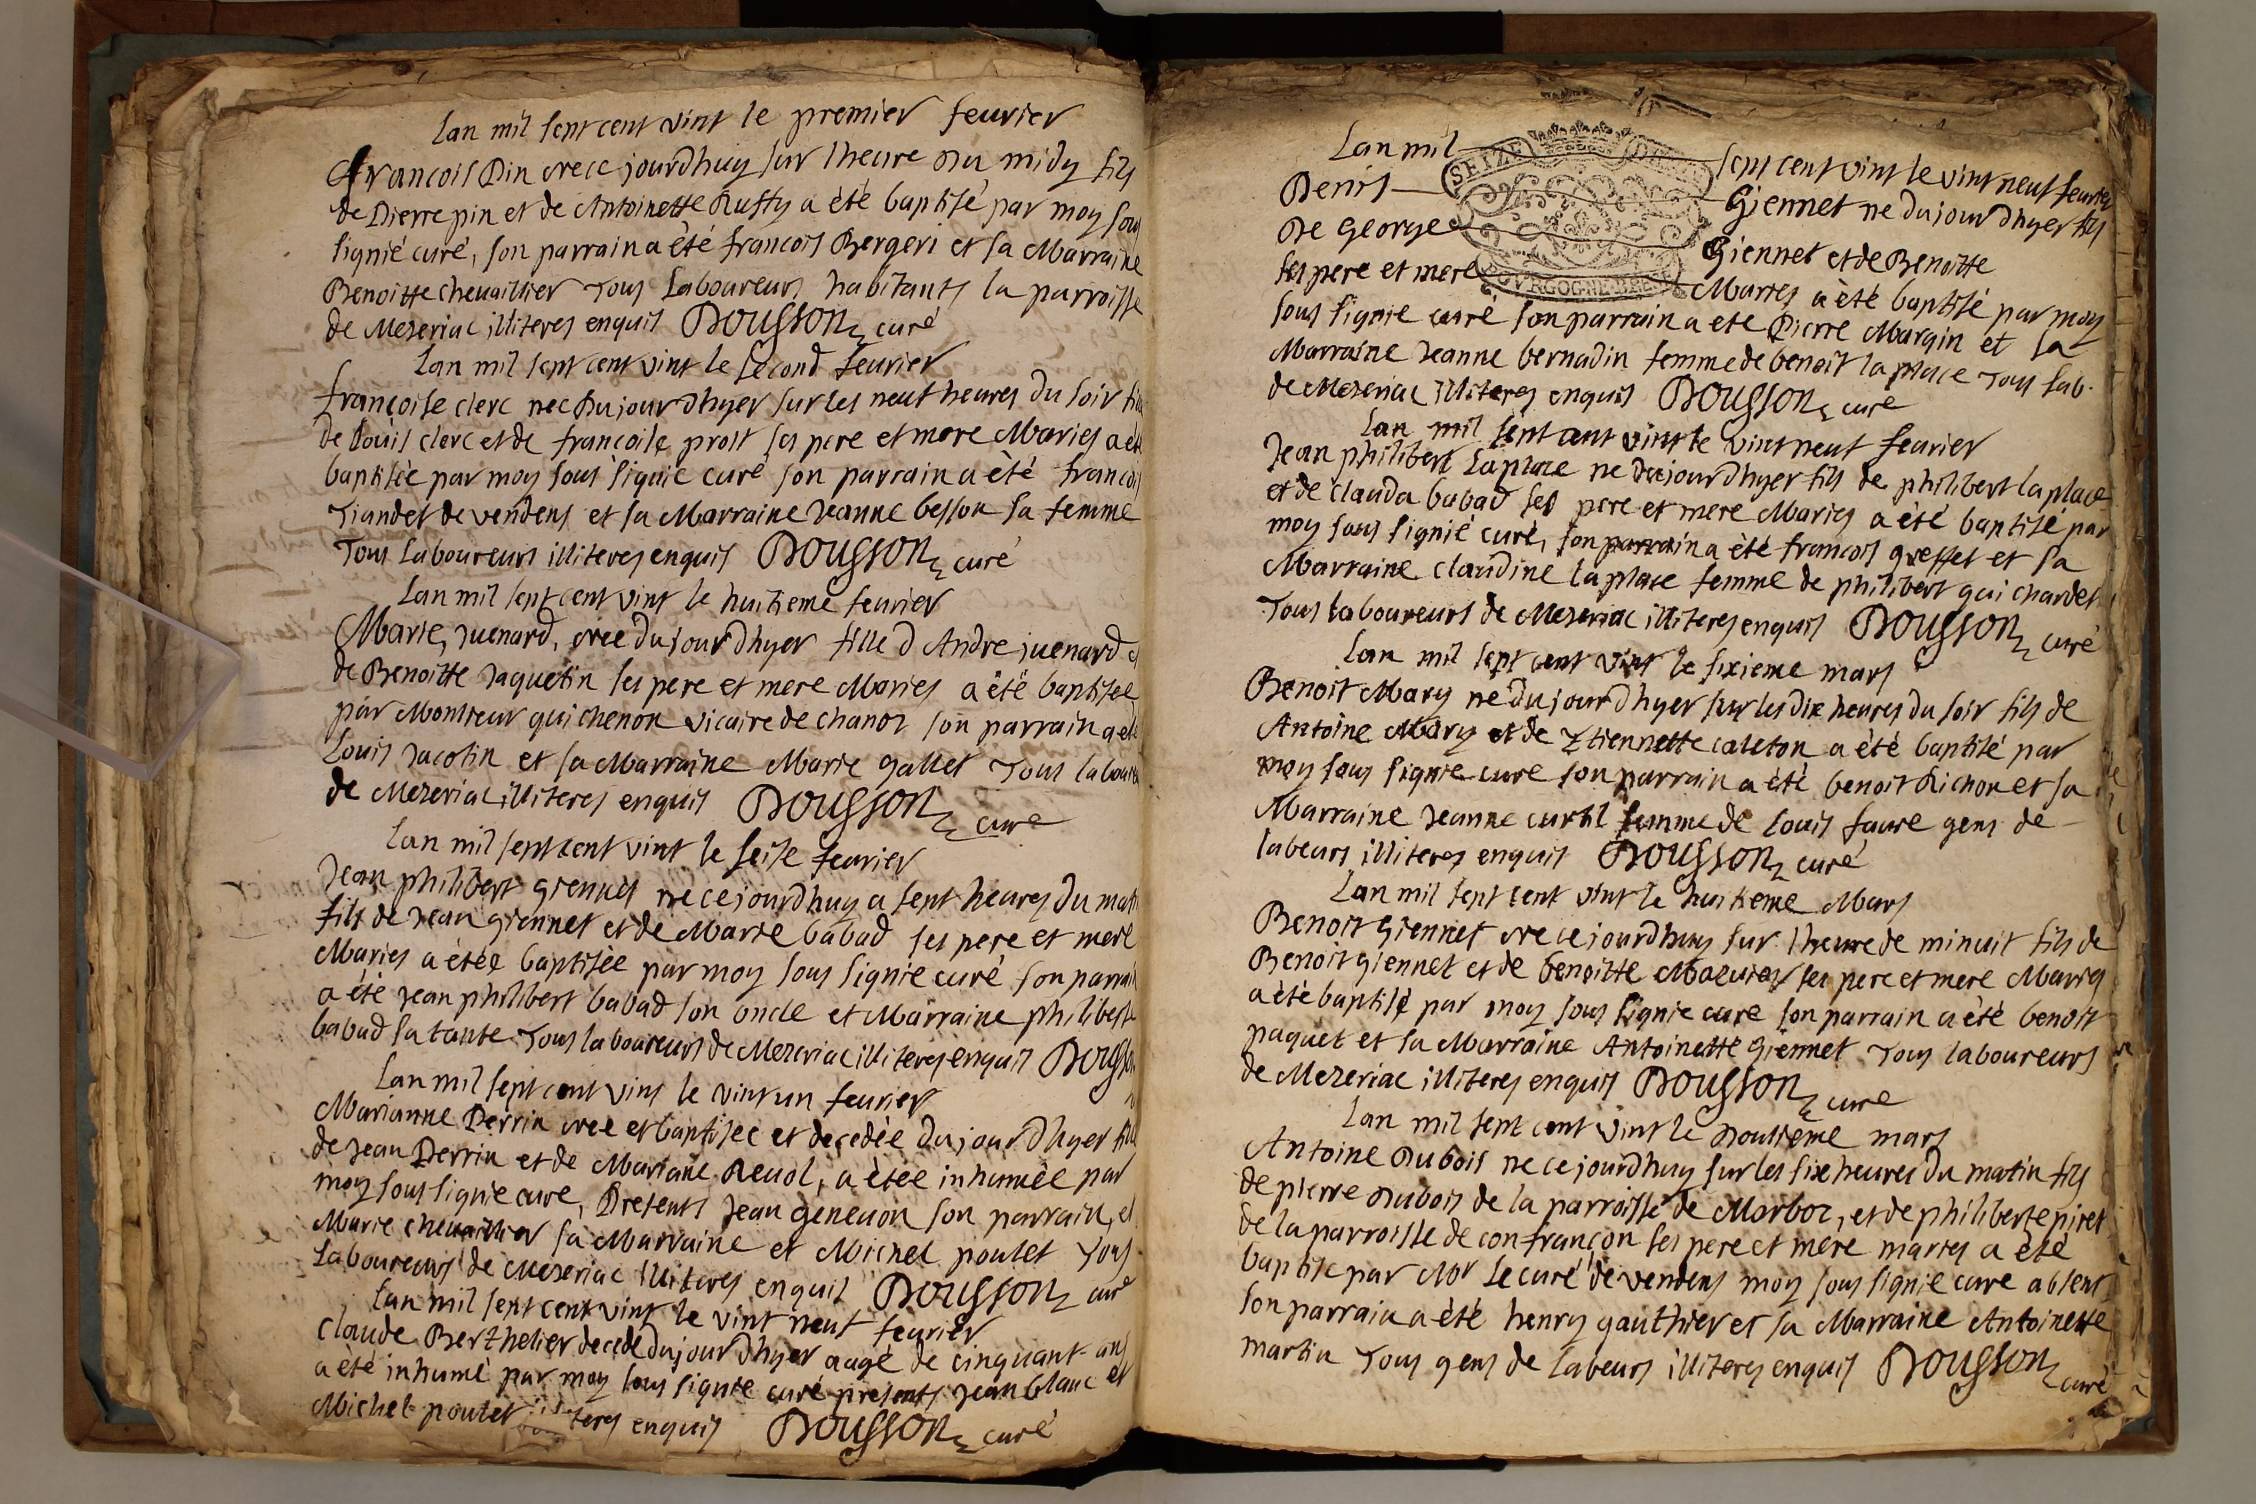 Lan mil sept cent vint le premier feurier
francois Pin nee ce jourdhuy sur lheure du midy fils
de Pierre pin et de Antoinette Ruffy a été baptisé par moy sou
signié curé, son parrain a été francois Bergeri et sa Marraine
Benoitte cheuaillier Tous Laboureurs habitants la parroisse
de Mezeriac illiteres enquis DOUSSON curé
Lan mil sept cent vint le second feurier
françoise clerc nee du jour dhyer sur les neuf heures du soir
de Louis clerc et de francoise prost ses pere et mere Maries a
baptisée par moy sous signié curé son parrain a été francoi
Tiandet de vendens et sa Marraine Jeanne besson sa femme
Tous Laboureurs illiteres enquis DOUSSON curé
Lan mil sept cent vint le huitieme feurier
Marie, Juenard, nee du jour dhyer fille d Andre juenard
de Benoitte Jaquetin ses pere et mere Maries a été baptisee
par Monsieur quichenon vicaire de chanoz son parrain a
Louis Jacotin et sa Marraine Marie gallet Tous
de Mezeriac illiteres enquis DOUSSON cure
Lan mil sept cent vint le seise feurier
Jean philibert Giennet ne ce jourdhuy a sept heures du
fils de Jean Giennet et de Marie babad ses pere et mere
Maries a étée baptisée par moy sous signie curé son
a été Jean philibert babad son oncle et Marraine philibert
babad sa tante Tous laboureurs de Mezeriac illiteres enquis
Lan mil sept cent vint le vint un feurier
Marianne Perrin nee et baptisee et decedée du jour dhyer
de Jean Perrin et de Mariane Reuol, a étée inhumée par
moy sous signie cure, Presents Jean geneuon son parrain, et
Marie cheuaillier sa Marraine et Michel poulet Tous
Laboureurs de Mezeriac illiteres enquis DOUSSON
Lan mil sept cent vint le vint neuf feurier
Claude Berthelier decede du jour dhyer aagé de cinquant ans
a été inhumé par moy sous signie curé presents Jean blanc et
Michel poulet enquis DOUSSON curé
SEIZE
BOURGOGNE BRE
Lan mil sept cent vint le vint neuf feurier
Denis Giennet ne du jour dhyer fils
De George Giennet et de Benoitte
ses pere et mere Maries a été baptisé par moy
sous signie curé son parrain a ete Pierre Margin et sa
Marraine Jeanne bernadin femme de benoit la place Tous lab.
de Mezeriac illiteres enquis DOUSSON cure
Lan mil sept cent vint le vint neuf feurier
Jean philibert Laplace ne du jour dhyer fils de philibert la place
et de clauda babad ses pere et mere Maries a été baptisé par
moy sous signié curé, son parrain a été francois greffet et sa
Marraine claudine la place femme de philibert qui chardet
Tous laboureurs de Mezeriac illiteres enquis DOUSSON curé
Lan mil sept cent vint le sixieme mars
Benoit Mary ne du jour dhyer sur les dix heures du soir fils de
Antoine Mary et de Etiennette caleton a été baptisé par
moy sous signie cure son parrain a été benoit Richon et sa
Marraine Jeanne curtil femme de Louis faure gens de
labeurs illiteres enquis DOUSSON curé
Lan mil sept cent vint le huitieme Mars
Benoit Giennet ne ce jourdhuy sur lheure de minuit fils de
Benoit giennet et de benoitte Mazuier ses pere et mere Maries
a été baptisé par moy sous signie cure son parrain a été benoit
paquet et sa Marraine Antoinette Giennet Tous laboureurs
de Mezeriac illiteres enquis DOUSSON cure
Lan mil sept cent vint le Douzieme mars
Antoine Dubois ne ce jourdhuy sur les six heures du matin fils
de pierre Dubois de la parroisse de Marboz, et de philiberte piret
de la parroisse de confrançon ses pere et mere maries a été
baptisé par Mr Le curé de vendens moy sous signie cure absent
son parrain a été henry gauthier et sa Marraine Antoinette
martin Tous gens de labeurs illiteres enquis DOUSSON curé